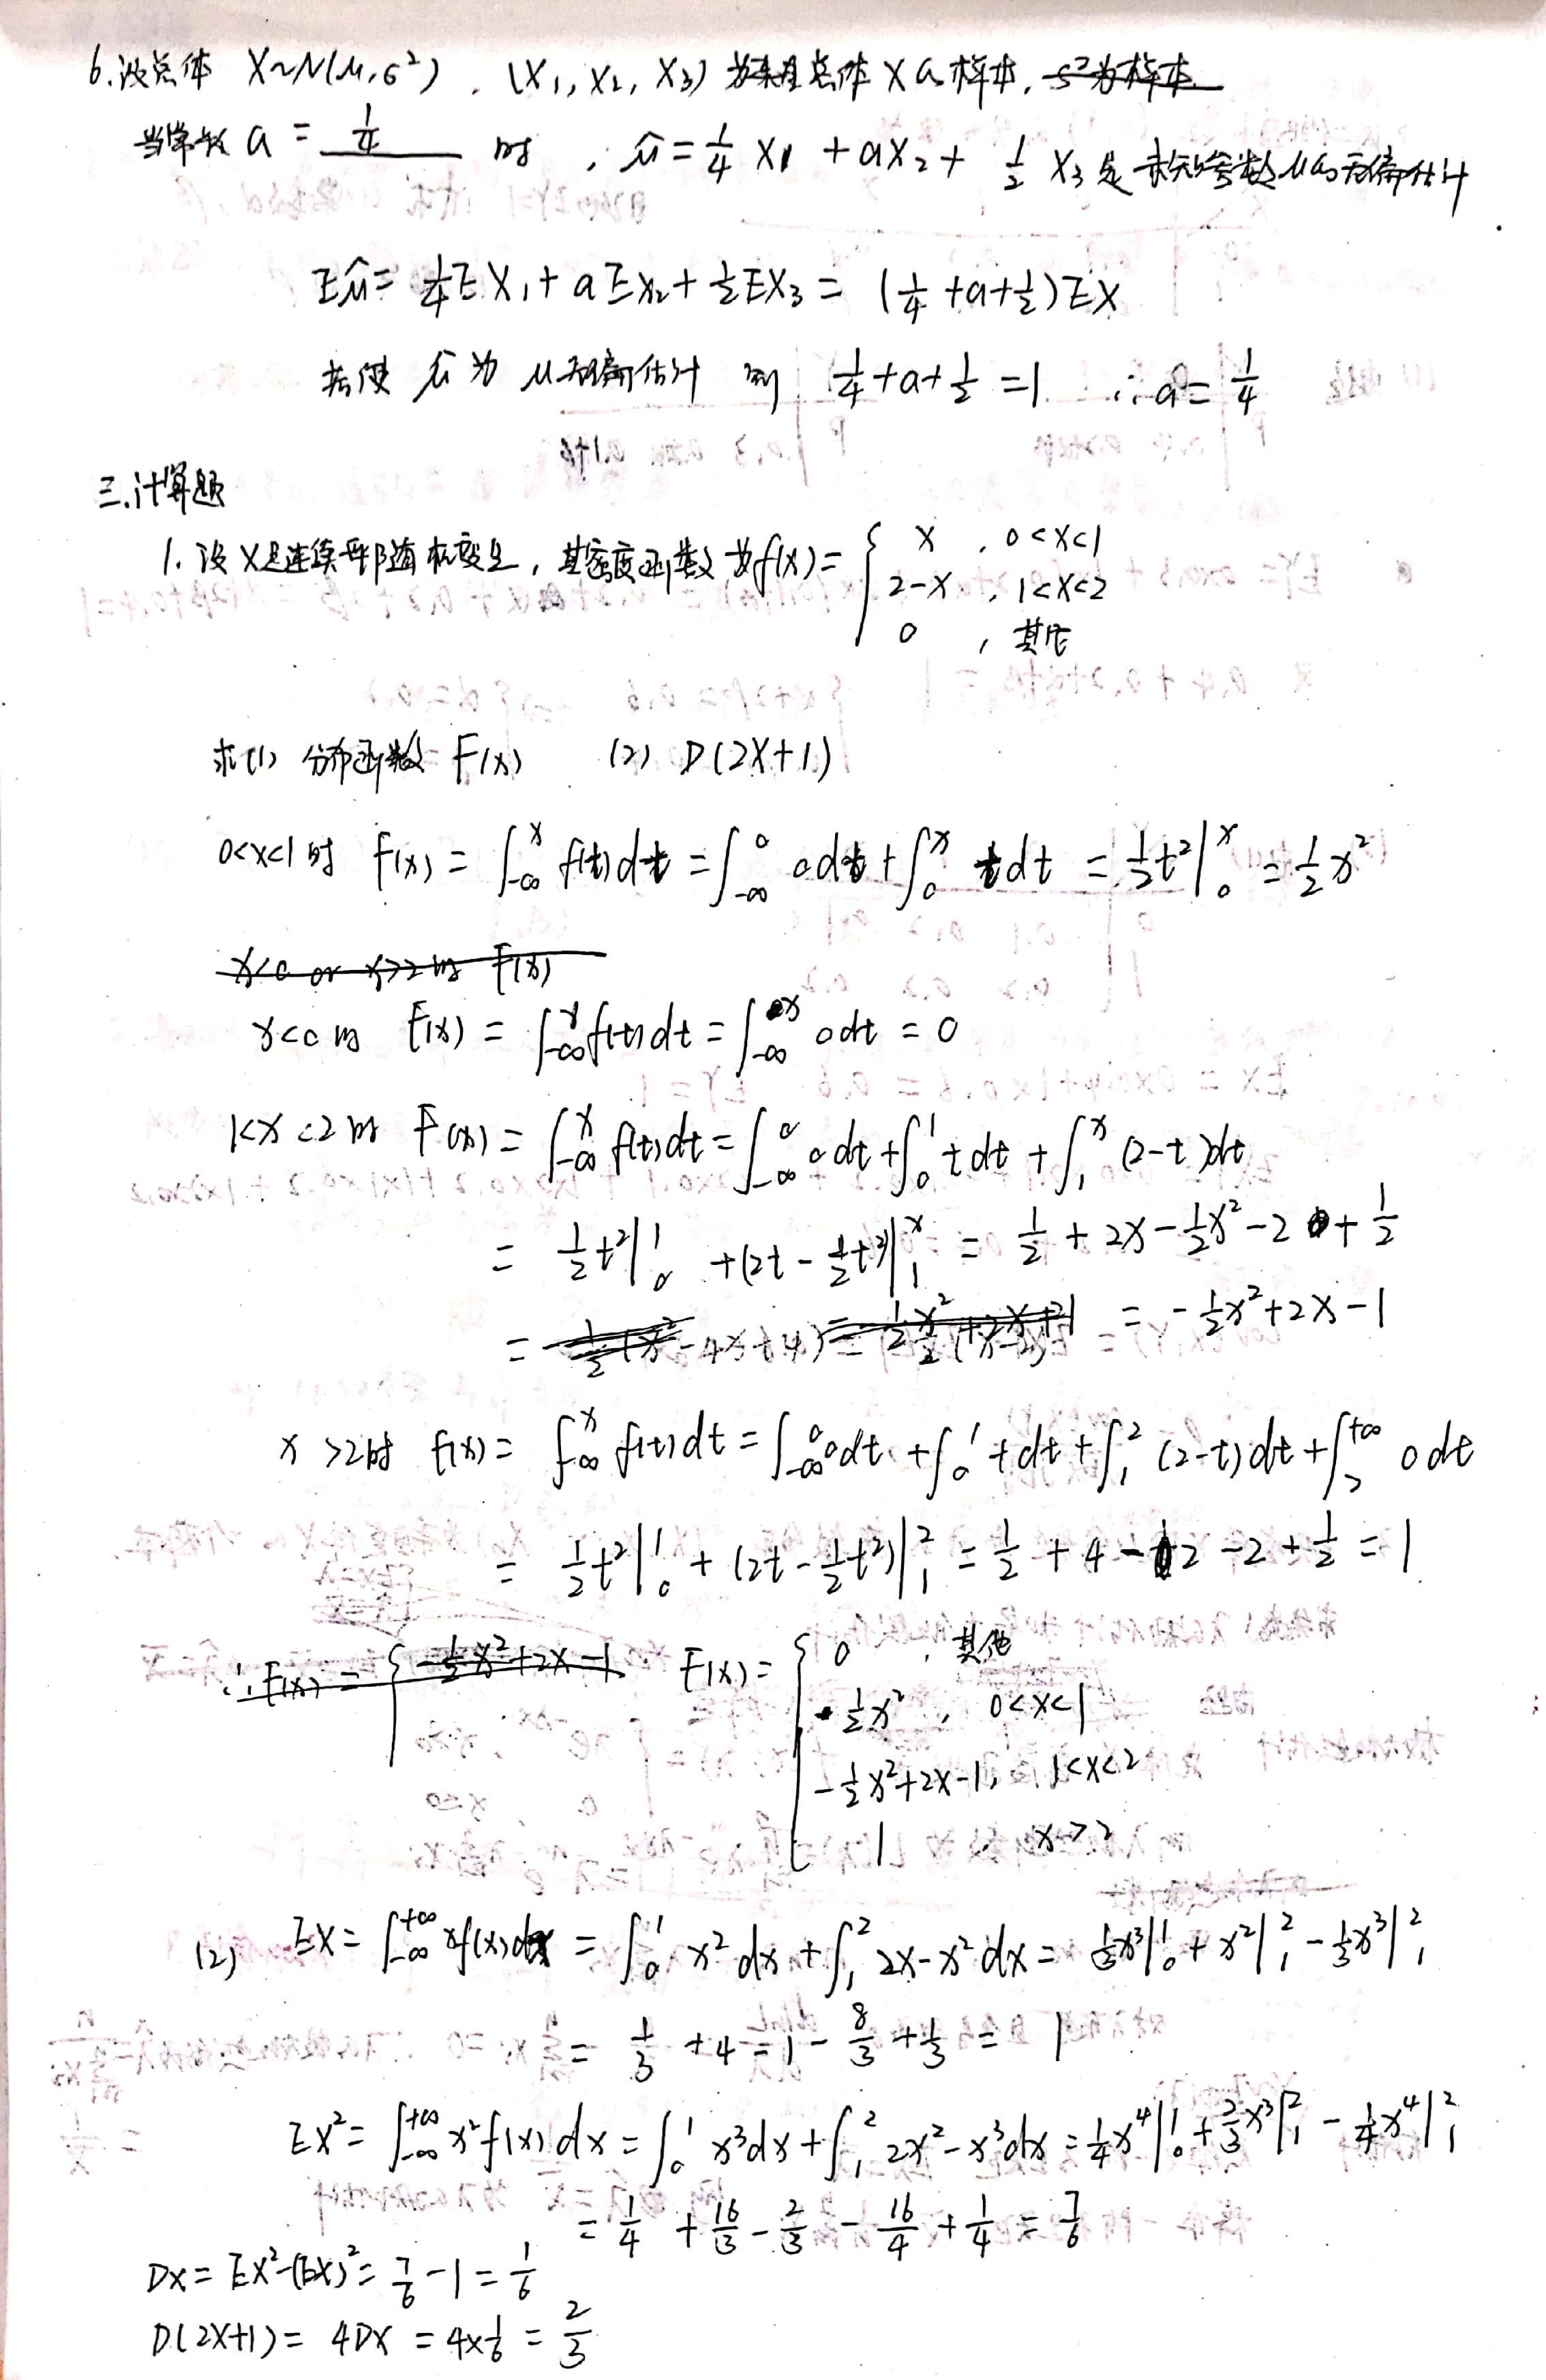 6.设总体 X~N(μ,σ²),(X₁,X₂,X₃)为来自总体X的样本,S²为样本
当常数 a = 1/4 时,μ̂ = 1/4 X₁ + aX₂ + 1/2 X₃ 是未知参数μ的无偏估计
Eμ̂ = 1/4 EX₁ + aEX₂ + 1/2 EX₃ = (1/4 + a + 1/2)EX
若使 μ̂ 为 μ无偏估计 则 1/4 + a + 1/2 = 1 ∴ a = 1/4
三.计算题
1.设X是连续型随机变量,其密度函数为f(x) = { x , 0<x<1
2-x , 1<x<2
0 , 其他
求(1) 分布函数 F(x) (2) D(2X+1)
0<x<1时 F(x) = ∫_{-∞}^{x} f(t)dt = ∫_{-∞}^{0} 0dt + ∫_{0}^{x} tdt = 1/2 t²|_{0}^{x} = 1/2 x²
x<0 or x>2时 F(x)
x<0时 F(x) = ∫_{-∞}^{x} f(t)dt = ∫_{-∞}^{x} 0dt = 0
1<x<2时 F(x) = ∫_{-∞}^{x} f(t)dt = ∫_{-∞}^{0} 0dt + ∫_{0}^{1} tdt + ∫_{1}^{x} (2-t)dt
= 1/2 t²|_{0}^{1} + (2t - 1/2 t²)|_{1}^{x} = 1/2 + 2x - 1/2 x² - 2 + 1/2
= = - 1/2 x² + 2x - 1
x>2时 f(x) = ∫_{-∞}^{x} f(t)dt = ∫_{-∞}^{0} 0dt + ∫_{0}^{1} tdt + ∫_{1}^{2} (2-t)dt + ∫_{2}^{+∞} 0dt
= 1/2 t²|_{0}^{1} + (2t - 1/2 t²)|_{1}^{2} = 1/2 + 4 - 2 - 2 + 1/2 = 1
∴F(x) = { -1/2 x² + 2x - 1 F(x) = { 0 , 其他
1/2 x² , 0<x<1
-1/2 x² + 2x - 1, 1<x<2
1 , x>2
(2) EX = ∫_{-∞}^{+∞} xf(x)dx = ∫_{0}^{1} x²dx + ∫_{1}^{2} 2x-x²dx = 1/3 x³|_{0}^{1} + x²|_{1}^{2} - 1/3 x³|_{1}^{2}
= 1/3 + 4 - 1 - 8/3 + 1/3 = 1
EX² = ∫_{-∞}^{+∞} x²f(x)dx = ∫_{0}^{1} x³dx + ∫_{1}^{2} 2x²-x³dx = 1/4 x⁴|_{0}^{1} + 2/3 x³|_{1}^{2} - 1/4 x⁴|_{1}^{2}
= 1/4 + 16/3 - 2/3 - 16/4 + 1/4 = 7/6
DX = EX²-(EX)² = 7/6 - 1 = 1/6
D(2X+1) = 4DX = 4×1/6 = 2/3